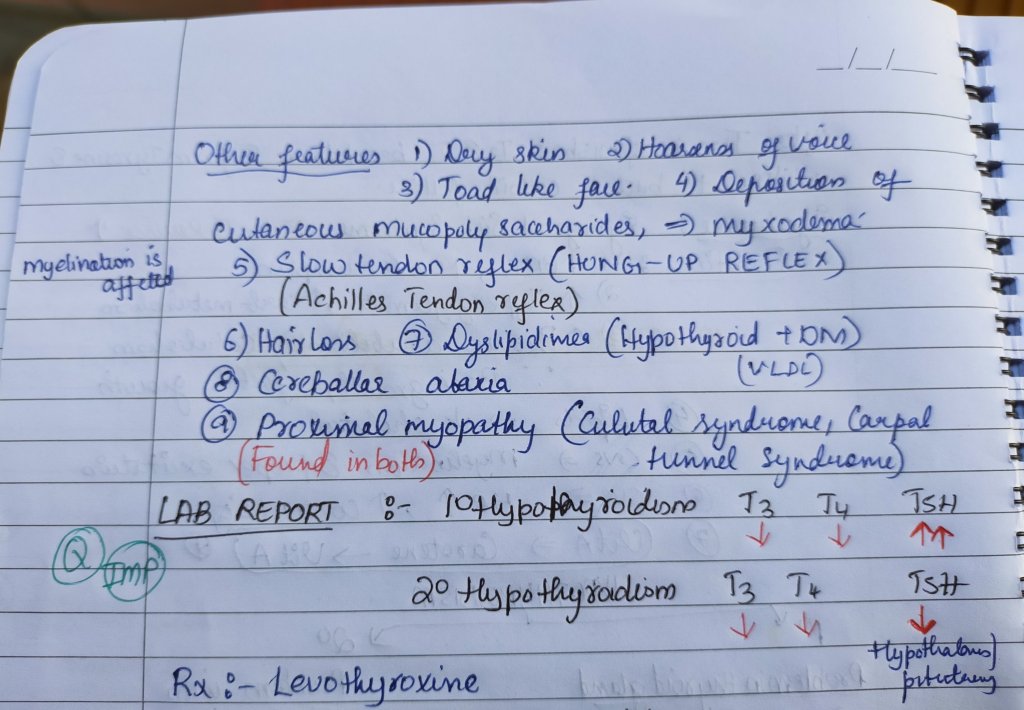 _/_/_
Other features 1) Dry skin 2) Hoarsenes of voice
3) Toad like face. 4) Deposition of
cutaneous mucopoly saccharides, ⇒ myxodema
myelination is
affected
5) Slow tendon reflex (HUNG-UP REFLEX)
(Achilles Tendon reflex)
6) Hairloss ⑦ Dyslipidimea (Hypothyroid + DM)
(VLDL)
⑧ Cereballar ataxia
⑨ Proximal myopathy (Culutal syndrome, Carpal
(Found in both). tunnel syndrome)
LAB REPORT :- 1° Hypothyroidism T3 T4 TSH
↓ ↓ ↑↑
Q IMP
2° Hypothyroidism T3 T4 TSH
↓ ↓ ↓
Hypothalamus)
Rx :- Levothyroxine